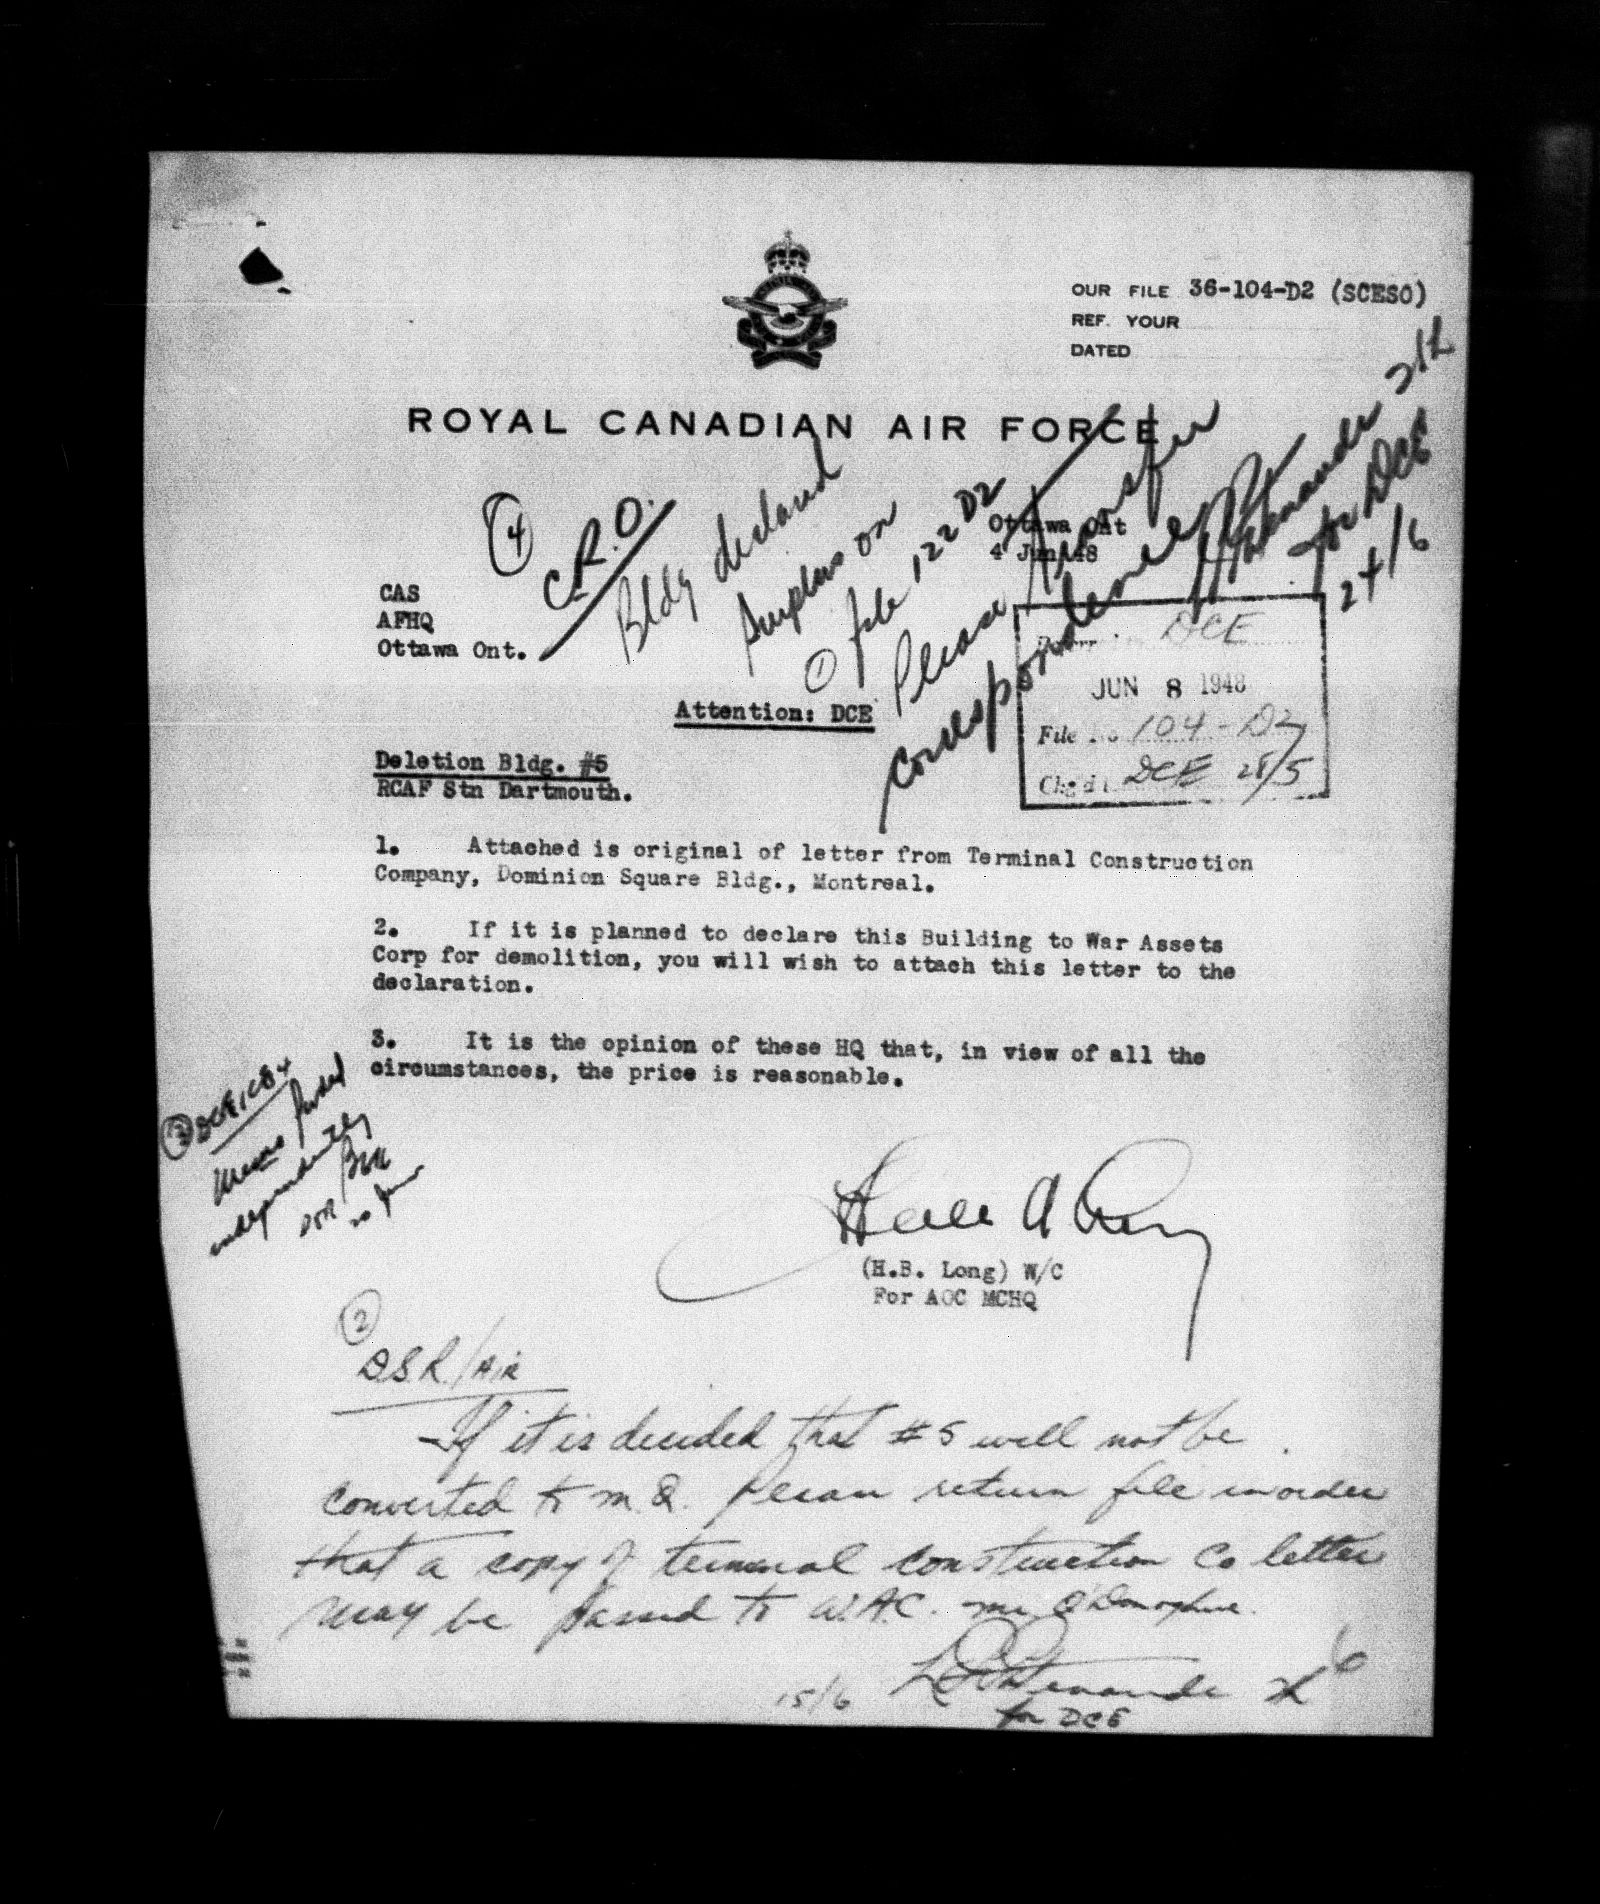 OUR FILE 36-104-D2 (SCESO)
REF. YOUR
DATED
ROYAL CANADIAN AIR FORCE
Ottawa Ont
4 Jun 48
4
C.R.O.
Bldg declared
surplus on
① file 122 D2
Please transfer
correspondence
for DCE
24/6
CAS
AFHQ
Ottawa Ont.
DCE
JUN 8 1948
File No 104-D2
Chg'd t DCE 28/5
Attention: DCE
Deletion Bldg. #5
RCAF Stn Dartmouth.
1. Attached is original of letter from Terminal Construction
Company, Dominion Square Bldg., Montreal.
2. If it is planned to declare this Building to War Assets
Corp for demolition, you will wish to attach this letter to the
declaration.
3. It is the opinion of these HQ that, in view of all the
circumstances, the price is reasonable.
③
Memo passed
independently
(H.B. Long) W/C
For AOC MCHQ
②
D.S.R./Air
If it is decided that #5 will not be
converted to M.Q. Please return file in order
that a copy of terminal construction Co letter
may be passed to W.A.C. Mr. O'Donoghue.
15/6
for DCE